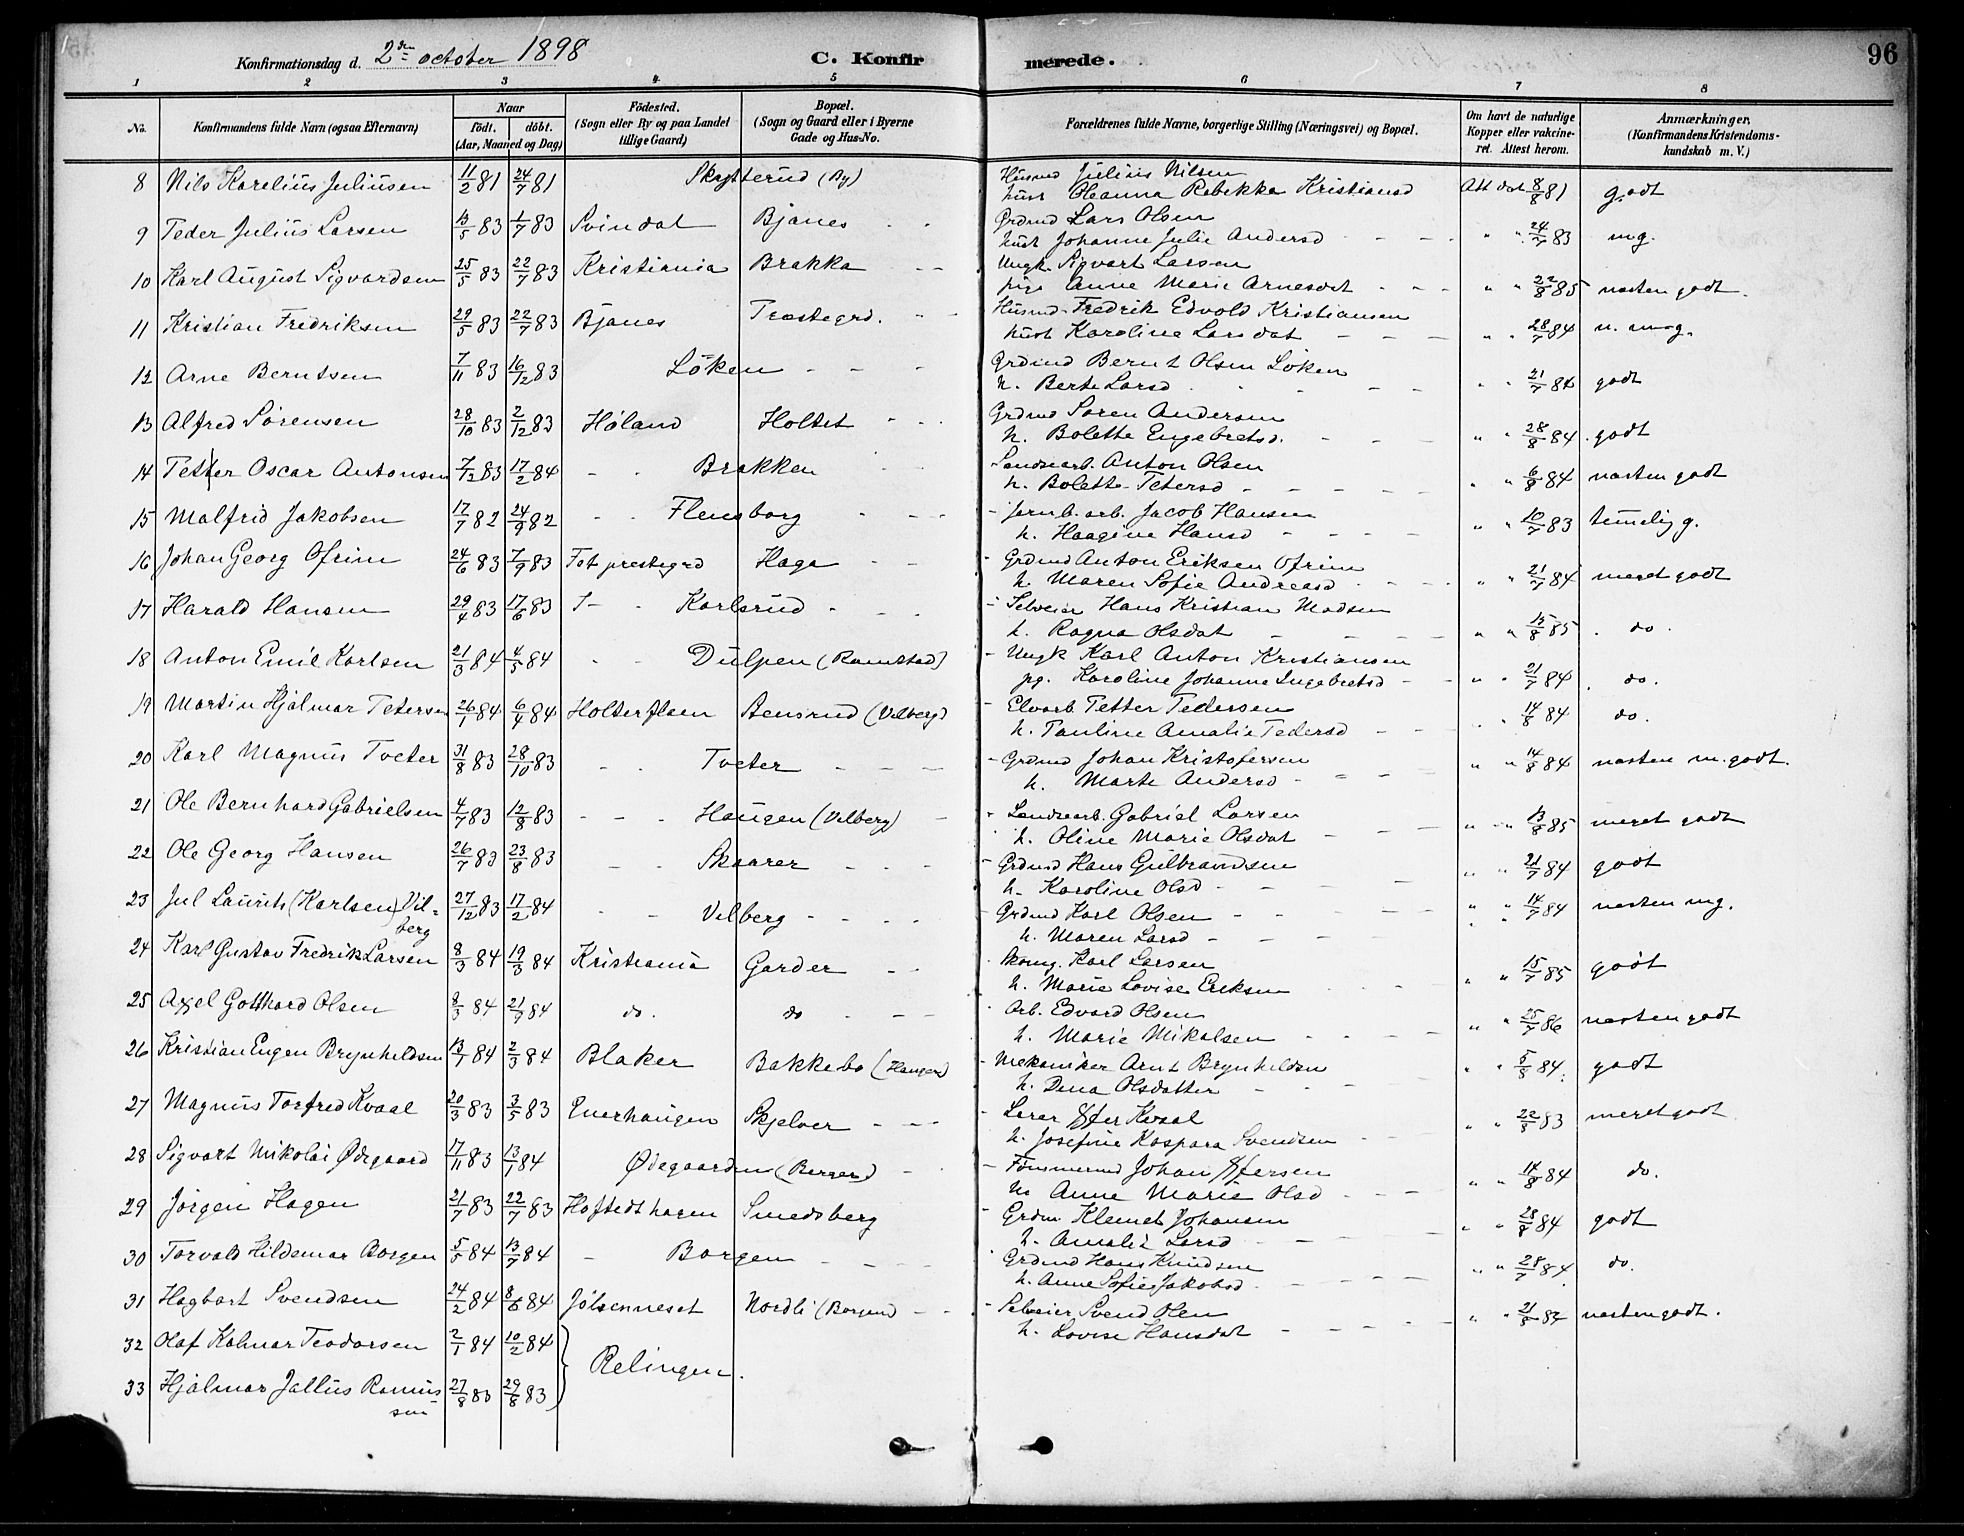 Konfirmationsdag d. 2den october 1898 C. Konfirmerede. 96
1 2 3 4 5 6 7 8
No. Konfirmandens fulde Navn (ogsaa Efternavn) Naar født. døbt. (Aar, Maaned og Dag) Fødested. (Sogn eller By og paa Landet tillige Gaard) Bopæl. (Sogn og Gaard eller i Byerne Gade og Hus-No. Forældrenes fulde Navne, borgerlige Stilling (Næringsvei) og Bopæl. Om havt de naturlige Kopper eller vakcineret. Attest herom. Anmærkninger. (Konfirmandens Kristendomskundskab m. V.)
8 Nils Karelius Juliusen 11/2 81 24/7 81 Skytterud (By) Husmd Julius Nilsen
hust Oleanna Rebekka Kristiansd Att dat 8/8 81 godt
9 Peder Julius Larsen 13/5 83 1/7 83 Svindal Bjanes Grdmd Lars Olsen
hust Johanne Julie Andersd 24/7 83 mg.
10 Karl August Sigvardsen 25/5 83 22/7 83 Kristiania Brakka Ungk. Sigvart Larsen
pige Anne Marie Arnesdat 22/8 85 næsten godt.
11 Kristian Fredriksen 29/5 83 22/7 83 Bjanes Træstegrd. Husmd Fredrik Edvold Kristiansen
hust Karoline Larsdat 28/7 84 n. mg.
12 Arne Berntsen 7/11 83 16/12 83 Löken Grdmd Bernt Olsen Löken
h. Berte Larsd 21/7 84 godt
13 Alfred Sørensen 28/10 83 2/12 83 Høland Holtet Grdmd Søren Andersen
h. Bolette Engebretsd. 28/8 84 godt
14 Petter Oscar Antonsen 7/12 83 17/2 84 Brakken Landearb. Anton Olsen
h. Bolette Petersd 6/8 84 næsten godt
15 Malfrid Jakobsen 17/7 82 24/9 82 Flensborg Jernb. arb. Jacob Hansen
h. Haagine Hansd 10/7 83 temelig g.
16 Johan Georg Ofrim 24/6 83 7/9 83 Fet prestegrd Haga Grdmd Anton Eriksen Ofrim
h. Maren Sofie Andreasd 21/7 84 meget godt
17 Harald Hansen 29/4 83 17/6 83 Karlsrud Selveier Hans Kristian Madsen
h. Ragna Olsdat 13/8 85 do.
18 Anton Emil Karlsen 21/3 84 4/5 84 Dulpen (Ramstad) Ungk Karl Anton Kristiansen
pg. Karoline Johanne Ingebretsd 21/7 84 do.
19 Martin Hjalmar Petersen 26/1 84 6/4 84 Holterflaen Bensrud (Velberg) Elvarb Petter Pedersen
h. Pauline Amalie Pedersd 14/8 84 do.
20 Karl Magnus Tveter 31/8 83 28/10 83 Tveter Grdmd Johan Kristofersen
h. Marte Andersd 14/8 84 næsten m. godt.
21 Ole Bernhard Gabrielsen 4/7 83 12/8 83 Haugen (Velberg) Landearb. Gabriel Larsen
h. Oline Marie Olsdat 13/8 85 meget godt
22 Ole Georg Hansen 26/7 83 23/8 83 Skaarer Grdmd Hans Gulbrandsen
h. Karoline Olsd 21/7 84 godt
23 Jul Laurits (Karlsen) Vilberg 27/12 83 17/2 84 Velberg Grdmd Karl Olsen
h. Maren Larsd 14/7 84 næsten mg.
24 Karl Gustav Fredrik Larsen 8/3 84 19/3 84 Kristiania Garder Skomg. Karl Larsen
h. Marie Lovise Eriksen 15/7 85 godt
25 Axel Gotthard Olsen 8/3 84 21/7 84 do. do Arb. Edvard Olsen
h. Marie Mikalsen 25/7 86 næsten godt
26 Kristian Eugen Brynheldsen 13/1 84 2/3 84 Blaker Bakkebo (Haugen) Mekaniker Arnt Brynheldsen
h. Dina Olsdatter 5/8 84 godt
27 Magnus Torfred Kvaal 20/3 83 3/5 83 Enerhaugen Skjelver Lærer Kvaal
h. Josefine Kaspara Svendsen 22/8 83 meget godt
28 Sigvart Nikolai Ødegaard 17/11 83 13/1 84 Ødegaarden Tømmermd Johan
h. Anne Marie Olsd 14/8 84 do.
29 Jörgen Hagen 21/7 83 22/7 83 Hofstedthagen Smedsberg Grdm. Klemet Johansen
h. Amalie Larsd 28/8 84 godt
30 Torvald Hildemar Borgen 5/5 84 13/7 84 Borgen Grdmd Hans Knudsen
h. Anne Sofie Jakobsd 28/7 84 do.
31 Hagbart Svendsen 24/2 84 8/6 84 Jølsenneset Nordli Selveier Svend Olsen
h. Lovise Hansdat 21/8 84 næsten godt.
32 Olaf Kalmar Teodorsen 2/1 84 10/2 84 Relingen.
33 Hjalmar Jallus Ramussen 27/8 83 29/8 83